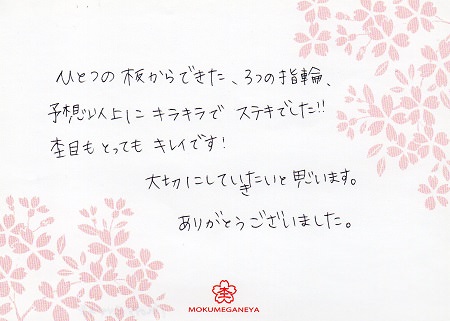 ひとつの板からできた、3つの指輪、
予想以上に キラキラで ステキでした!!
杢目もとっても キレイです!
大切にしていきたいと思います。
ありがとうございました。
杢
MOKUMEGANEYA